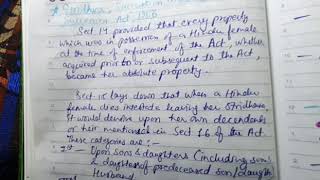 Act, 1956
Sect 14 provided that every property
which was in possession of a Hindu female
at the time of enforcement of the Act, whether
acquired prior to or subsequent to the Act,
became her absolute property.
Sect 15 lays down that when a Hindu
female dies intestate leaving her Stridhana,
it would devolve upon her own descendants
or heir mentioned in Sect 16 of the Act.
These categories are :-
1st - Upon sons & daughters (including sons
& daughters of predeceased son/daughter
Husband